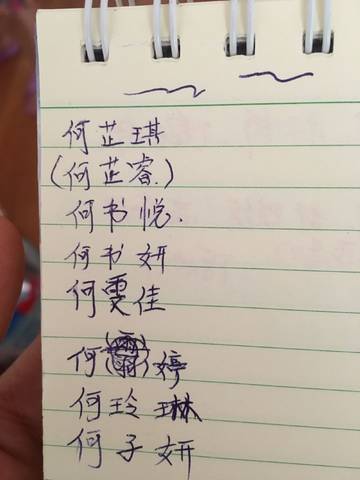 何芷琪
(何芷睿.)
何书悦.
何书妍
何雯佳
何婷
何玲琳
何子妍